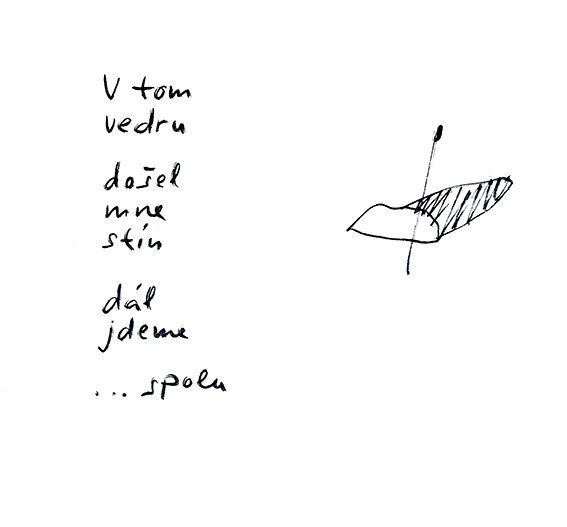 V tom
vedru
došel
mne
stín
dál
jdeme
... spolu